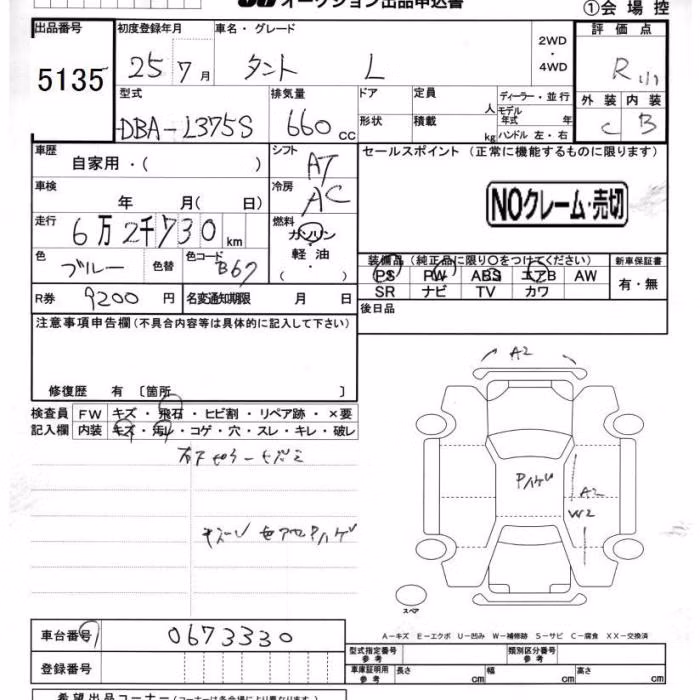 オークション出品申込書
①会場控
出品番号
5135
初度登録年月
25 7月
車名・グレード
タント L
2WD
・
4WD
評価点
R
外装 内装
C B
型式
DBA-L375S
排気量
660 cc
ドア
形状
定員 人
積載 kg
ディーラー・並行
モデル
年式 年
ハンドル 左・右
車歴
自家用・( )
シフト
AT
セールスポイント (正常に機能するものに限ります)
NOクレーム・売切
車検
年 月( 日)
冷房
AC
走行
6万2千730km
燃料
ガソリン
・
軽油
・
( )
色
ブルー
色替
色コード
B67
装備品(純正品に限り〇をつけてください)
PS PW ABS エアB AW
SR ナビ TV カワ
新車保証書
有・無
R券 9200 円
名変通知期限 月 日
後日品
注意事項申告欄(不具合内容等は具体的に記入して下さい)
修復歴 有 〔箇所 〕
検査員
記入欄
FW キズ・飛石・ヒビ割・リペア跡・×要
内装 キズ・汚れ・コゲ・穴・スレ・キレ・破レ
A2
Pハゲ
A2
W2
スペア
A-キズ E-エクボ U-凹み W-補修跡 S-サビ C-腐食 XX-交換済
車台番号
0673330
登録番号
型式指定番号
参考
類別区分番号
参考
車庫証明用
参考
長さ cm
幅 cm
高さ cm
希望出品コーナー(コーナーは各会場により異なります)